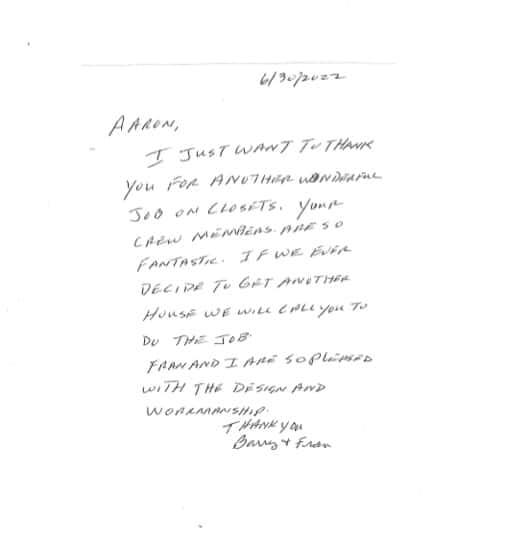 6/30/2022
AARON,
I JUST WANT TO THANK
YOU FOR ANOTHER WONDERFUL
JOB ON CLOSETS. YOUR
CREW MEMBERS ARE SO
FANTASTIC. IF WE EVER
DECIDE TO GET ANOTHER
HOUSE WE WILL CALL YOU TO
DO THE JOB.
FRAN AND I ARE SO PLEASED
WITH THE DESIGN AND
WORKMANSHIP.
THANK YOU
Barry + Fran